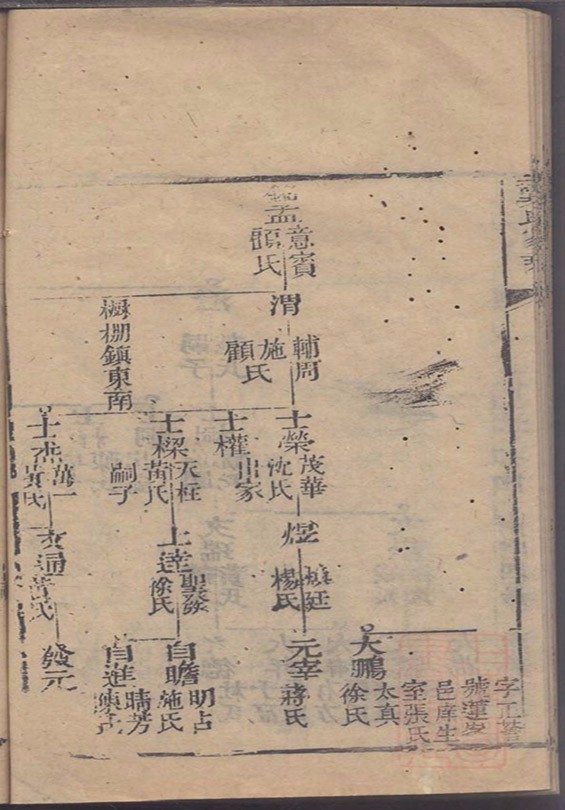 孟
意賓
顧氏
渭
輔周
施氏
顧
柵鎮東南
士榮
茂華
沈氏
士權
出家
士樑
天柱
黃氏
嗣子
士
萬一
黃氏
煜
廷
楊氏
上達
聖發
徐氏
文通
黃氏
大鵬
太真
徐氏
字正
號蓮
邑庠生
室張氏
元宰
蔣氏
自瞻
明占
施氏
自進
晴芳
陳氏
發元